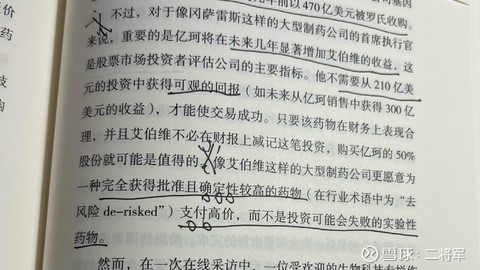 几年前以470亿美元被罗氏收购。
不过，对于像冈萨雷斯这样的大型制药公司的首席执行官
来说，重要的是亿珂将在未来几年显著增加艾伯维的收益，这
是股票市场投资者评估公司的主要指标。他不需要从210亿美
元的投资中获得可观的回报（如未来从亿珂销售中获得300亿
美元的收益），才能使交易成功。只要该药物在财务上表现合
理，并且艾伯维不必在财报上减记这笔投资，购买亿珂的50%
股份就可能是值得的。像艾伯维这样的大型制药公司更愿意为
一种完全获得批准且确定性较高的药物（在行业术语中为“去
风险 de-risked”）支付高价，而不是投资可能会失败的实验性
药物。
然而，在一次在线采访中，一位受欢迎的生物科技
雪球：二将军